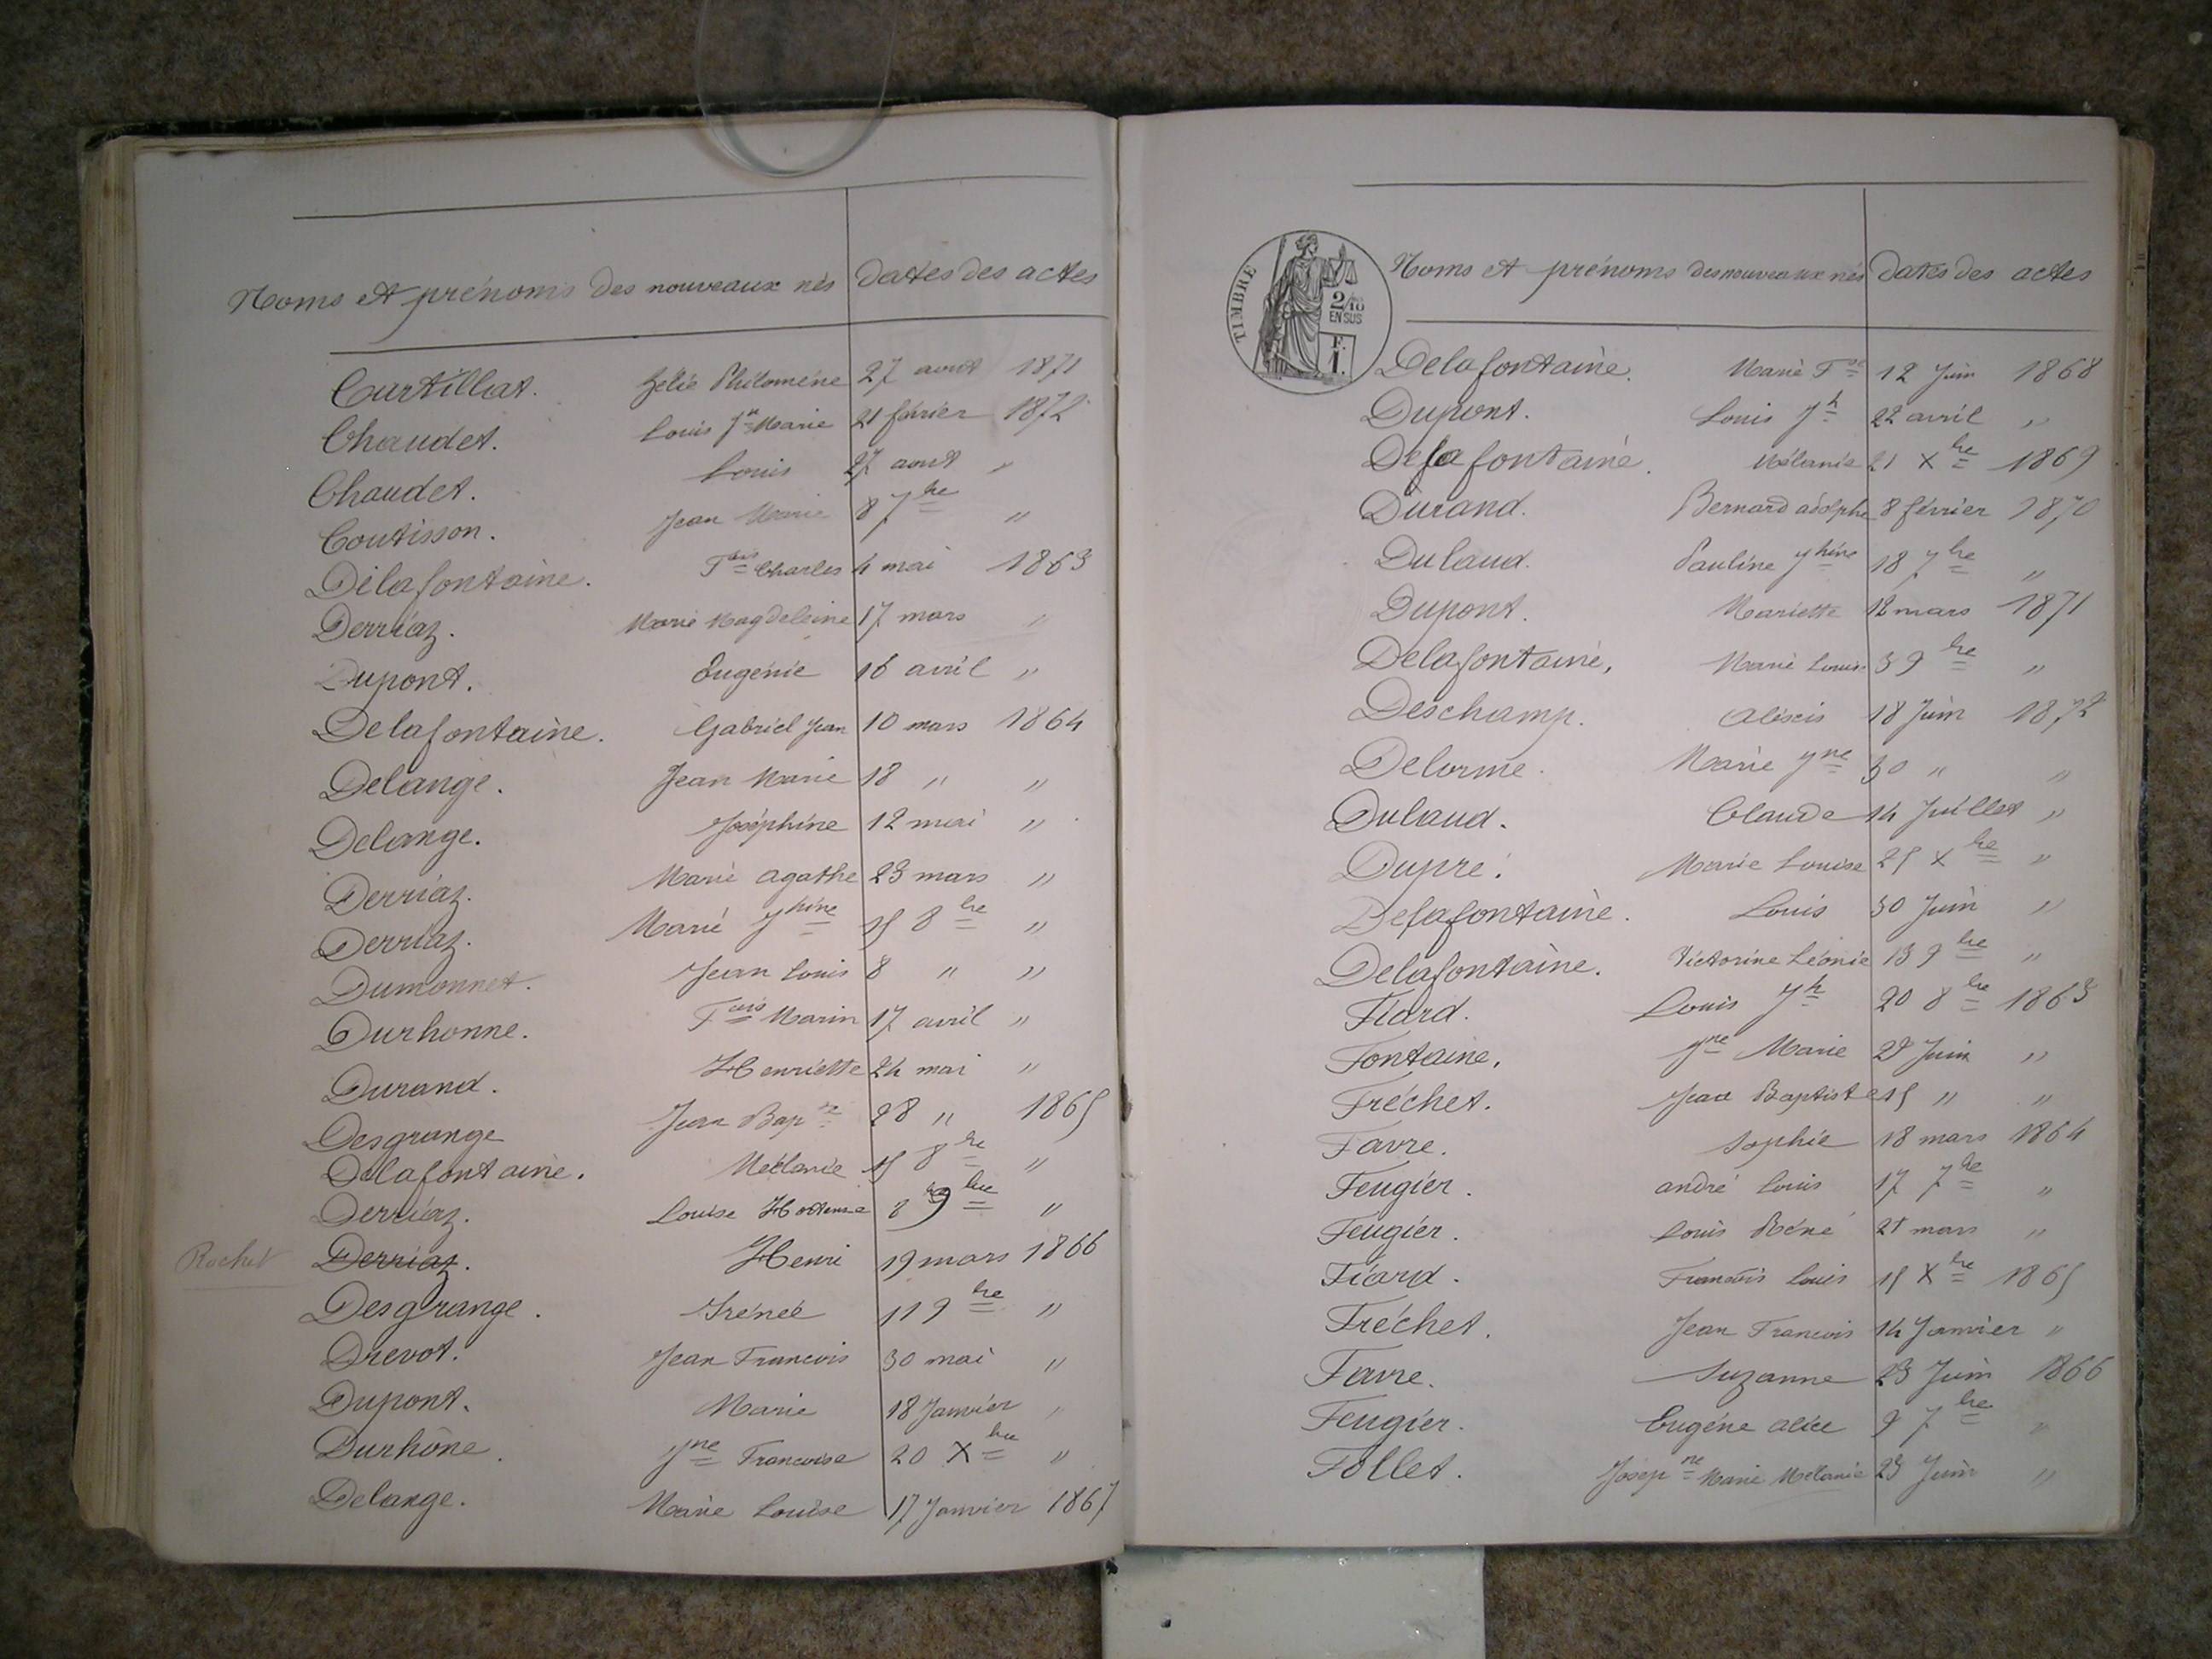 Noms et prénoms des nouveaux nés Dates des actes
Curtillat. Zélie Philomène 27 aout 1871
Chaudet. Louis Jh Marie 21 février 1872
Chaudet. Louis 27 aout "
Coutisson. Jean Marie 8 7bre "
Delafontaine. Fois Charles 4 mai 1863
Derriaz. Marie Magdeleine 17 mars "
Dupont. Eugénie 16 avril "
Delafontaine. Gabriel Jean 10 mars 1864
Delange. Jean Marie 18 " "
Delange. Joséphine 12 mai "
Derriaz. Marie agathe 23 mars "
Derriaz. Marie Jhine 15 8bre "
Dumonnet. Jean Louis 8 " "
Durhonne. Fois Marin 17 avril "
Durand. Henriette 24 mai "
Desgrange Jean Bapte 28 " 1865
Delafontaine. Mélanie 15 8bre "
Derriaz. Louise Hortense 8 9bre "
Rochet Derriaz. Henri 19 mars 1866
Desgrange. Irénée 11 9bre "
Drevot. Jean Francois 30 mai "
Dupont. Marie 18 Janvier "
Durhône. Jne Francoise 20 Xbre "
Delange. Marie Louise 17 Janvier 1867
TIMBRE
2/10
EN SUS
F.
1.
Noms et prénoms des nouveaux nés Dates des actes
Delafontaine. Marie Fse 12 Juin 1868
Dupont. Louis Jh 22 avril "
Delafontaine. Mélanie 21 Xbre 1869
Durand. Bernard adolphe 8 février 1870
Dulaud. Pauline Jhine 18 7bre "
Dupont. Mariette 12 mars 1871
Delafontaine, Marie Louise 3 9bre "
Deschamp. Aléxis 18 Juin 1872
Delorme. Marie Jne 30 " "
Dulaud. Claude 14 Juillet "
Dupré. Marie Louise 25 Xbre "
Delafontaine. Louis 30 Juin "
Delafontaine. Victorine Léonie 13 9bre "
Fiard. Louis Jh 20 8bre 1863
Fontaine. Jne Marie 29 Juin "
Fréchet. Jean Baptiste 15 " "
Favre. Sophie 18 mars 1864
Feugier. andré Louis 17 7bre "
Feugier. Louis Réné 21 mars "
Fiard. Francois Louis 15 Xbre 1865
Fréchet. Jean Francois 14 Janvier "
Favre. Suzanne 23 Juin 1866
Feugier. Eugéne alice 9 7bre "
Follet. Josepne Marie Mélanie 23 Juin "